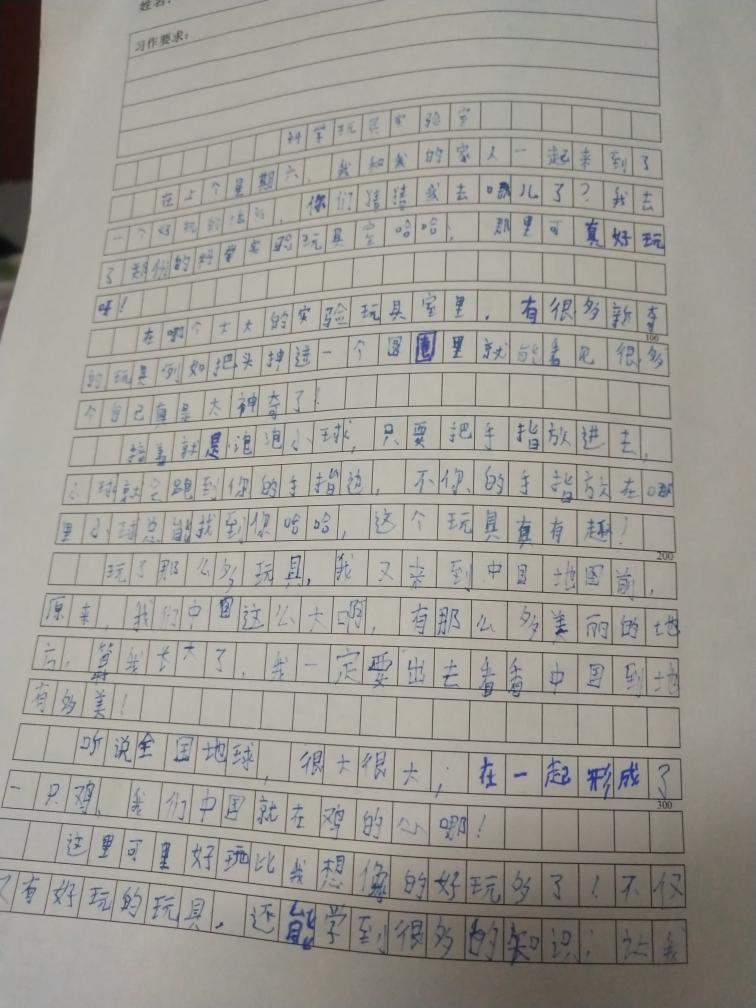 姓名:
习作要求:
科学玩具实验室
在上个星期六,我和我的家人一起来到了
一个好玩的地方,你们猜猜我去哪儿了?我去
了的科学实验玩具室哈哈,那里可真好玩
呀!
在哪个大大的实验玩具室里,有很多新奇
100
的玩具例如把头抻进一个圆里就能看见很多
个自己真是大神奇了!
接着就是泡泡小球,只要把手指放进去,
小球就会跑到你的手指边,不你的手指放在哪
里小球总能找到你哈哈,这个玩具真有趣!
200
玩了那么多玩具,我又来到中国地图前,
原来,我们中国这么大啊,有那么多美丽的地
方,算我长大了,我一定要出去看看中国到地
有多美!
听说全国地球,很大很大;在一起形成了
300
一只鸡,我们中国就在鸡的心哪!
这里可里好玩比我想像的好玩多了!不仅
又有好玩的玩具,还能学到很多的知识;让我